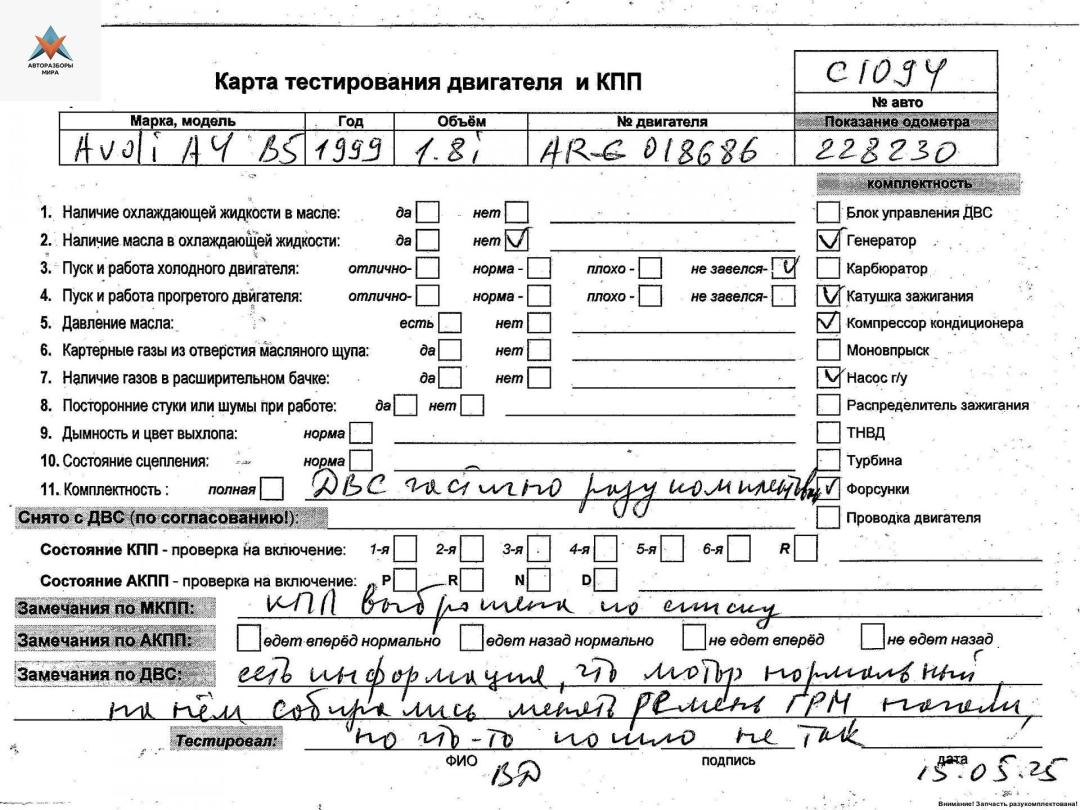 АВТОРАЗБОРЫ
МИРА
Карта тестирования двигателя и КПП
C1094
№ авто
Марка, модель Год Объём № двигателя Показание одометра
Avdi A4 B5 1999 1.8i ARG 018686 228230
комплектность
1. Наличие охлаждающей жидкости в масле: да нет Блок управления ДВС
2. Наличие масла в охлаждающей жидкости: да нет Генератор
3. Пуск и работа холодного двигателя: отлично- норма - плохо - не завелся- Карбюратор
4. Пуск и работа прогретого двигателя: отлично- норма - плохо - не завелся- Катушка зажигания
5. Давление масла: есть нет Компрессор кондиционера
6. Картерные газы из отверстия масляного щупа: да нет Моновпрыск
7. Наличие газов в расширительном бачке: да нет Насос г/у
8. Посторонние стуки или шумы при работе: да нет Распределитель зажигания
9. Дымность и цвет выхлопа: норма ТНВД
10. Состояние сцепления: норма Турбина
11. Комплектность : полная ДВС частично Форсунки
Снято с ДВС (по согласованию!): Проводка двигателя
Состояние КПП - проверка на включение: 1-я 2-я 3-я 4-я 5-я 6-я R
Состояние АКПП - проверка на включение: P R N D
Замечания по МКПП: КПП выброшена по списку
Замечания по АКПП: едет вперёд нормально едет назад нормально не едет вперёд не едет назад
Замечания по ДВС: есть информация, что мотор нормальный
на нём собирались менять ремень ГРМ начали,
Тестировал: но что-то пошло не так
ФИО подпись дата
ВД 15.05.25
Внимание! Запчасть разукомплектована!